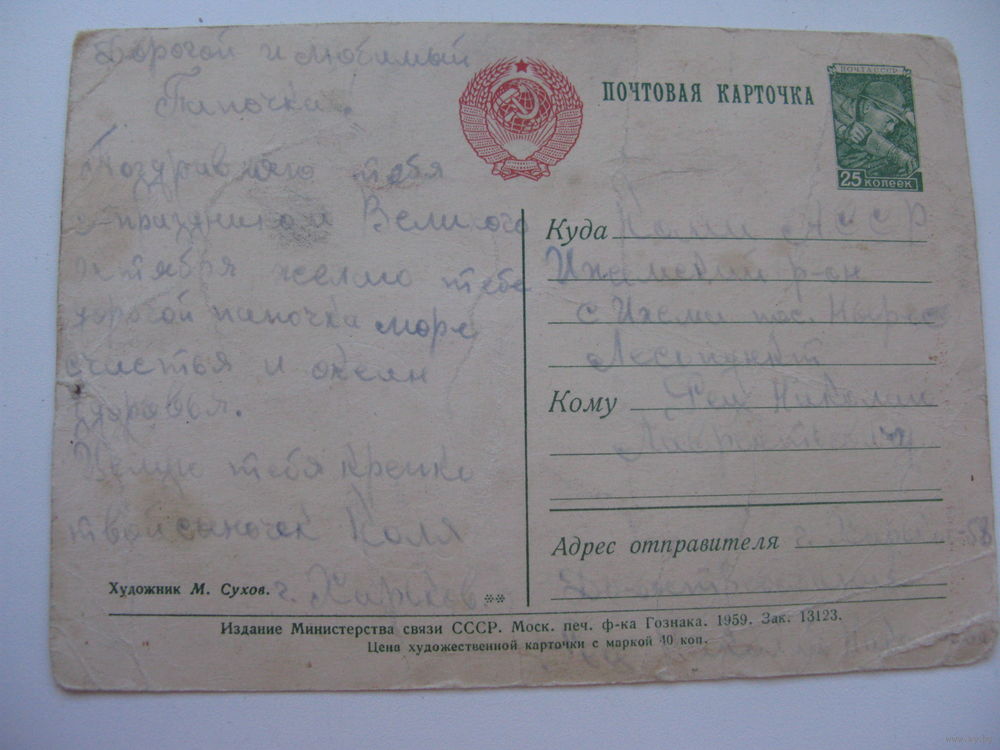 Дорогой и любимый
Папочка!
Поздравляю тебя
с праздником Великого
Октября желаю тебе
дорогой папочка море
счастья и океан
здоровья.
Целую тебя крепко
твой сыночек Коля
г. Харьков.
Художник М. Сухов.
**
ПОЧТОВАЯ КАРТОЧКА
ПОЧТА СССР
25 КОПЕЕК
Куда Коми АССР
Ижемский р-он
с Ижма пос.
Лесопункт
Кому Николаю
Адрес отправителя г. -58
Издание Министерства связи СССР. Моск. печ. ф-ка Гознака. 1959. Зак. 13123.
Цена художественной карточки с маркой 40 коп.